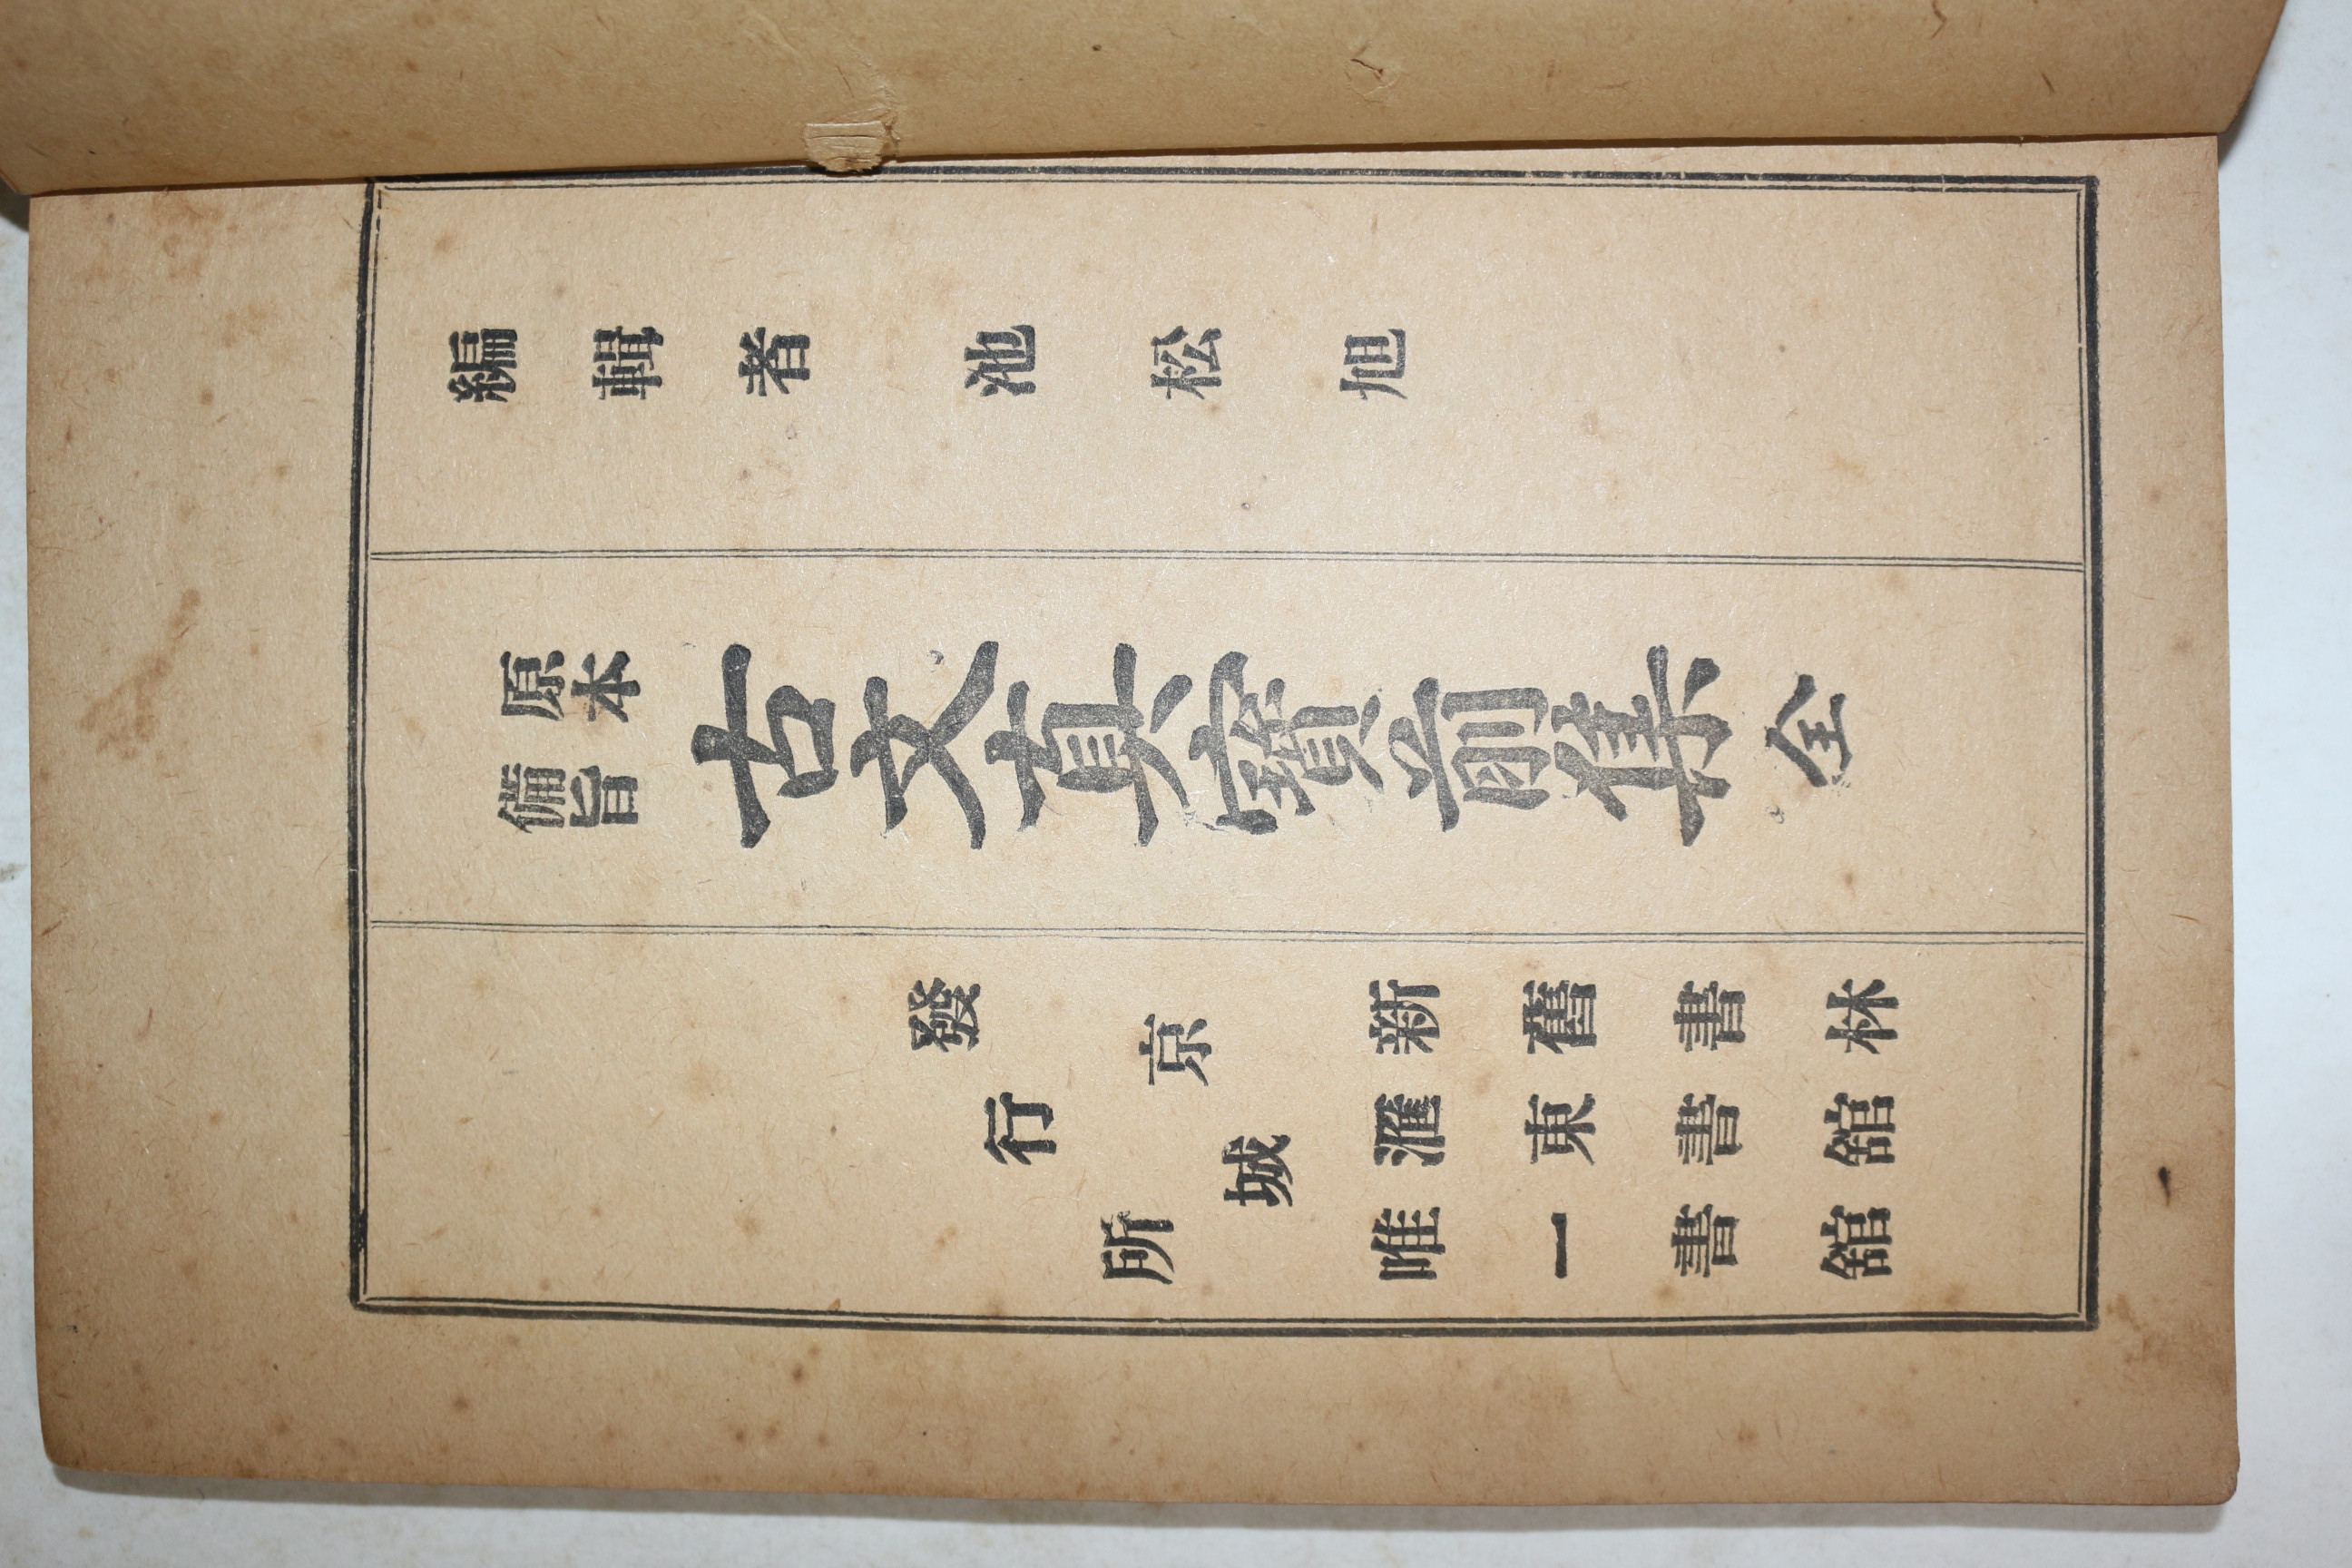 編輯者 池松旭
原本
備旨
古文眞寶前集 全
發行所
京城
新舊書林
滙東書舘
唯一書舘